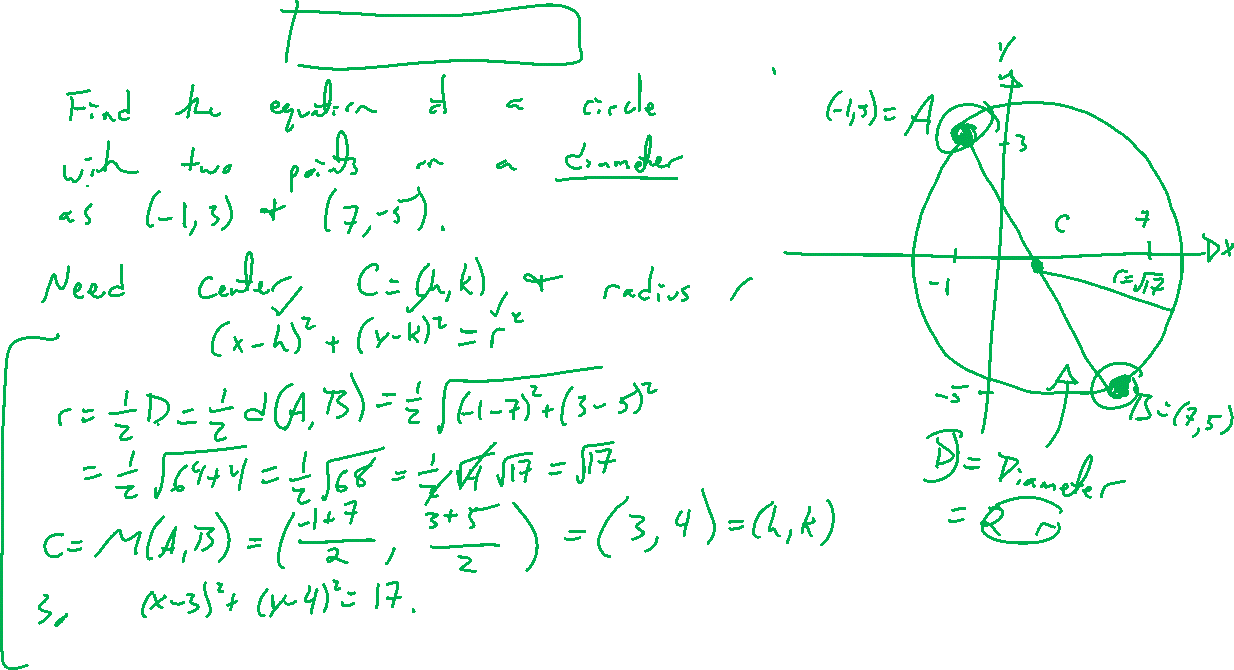 Find the equation of a circle
with two points on a diameter
as (-1,3) + (7,-5).
Need center C=(h,k) + radius r
(x-h)²+(y-k)²=r²
r=½D=½d(A,B)=½√((-1-7)²+(3-5)²)
=½√(64+4)=½√68=½√4√17=√17
C=M(A,B)=((-1+7)/2, (3+5)/2)=(3,4)=(h,k)
3, (x-3)²+(y-4)²=17.
Y
(-1,3)=A
3
C
7
X
-1
r=√17
-5
B=(7,5)
D=Diameter
=2r